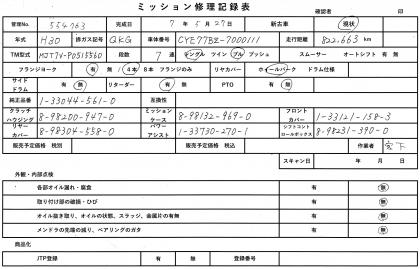 ミッション修理記録表
確認者 印
管理No. 554763 完成日 7年5月27日 新古車 現状
年式 H30 排ガス記号 QKG 車体番号 CYE77B2-7000111 走行距離 822.663 km
TM型式 MJT7V-P0515560 段数 7速 シングル ツイン プル プッシュ スムーサー オートシフト 有 無
フランジヨーク 有 無 / 4本 8本 フランジのみ リヤカバー ホイールパーク ドラム仕様
サイドドラム 有 無 リターダー 有 無 PTO 有 無
純正品番 1-33044-561-0 互換性
クラッチハウジング 8-98200-947-0 ミッションケース 8-98132-969-0 フロントカバー 1-33121-158-3
リヤーカバー 8-98304-558-0 パワーアシスト 1-33730-270-1 シフトコントロールボックス 8-98231-390-0
販売予定価格 税別 販売予定価格 税込 作業者 宮下
スキャン日 年 月 日
外観・内部点検
各部オイル漏れ・腐食 有 無
取り付け部の破損・ひび 有 無
オイル抜き取り、オイルの状態、スラッジ、金属片の有無 有 無
メンドラの先端の減り、ベアリングのガタ 有 無
商品化
JTP登録 有 無 登録番号